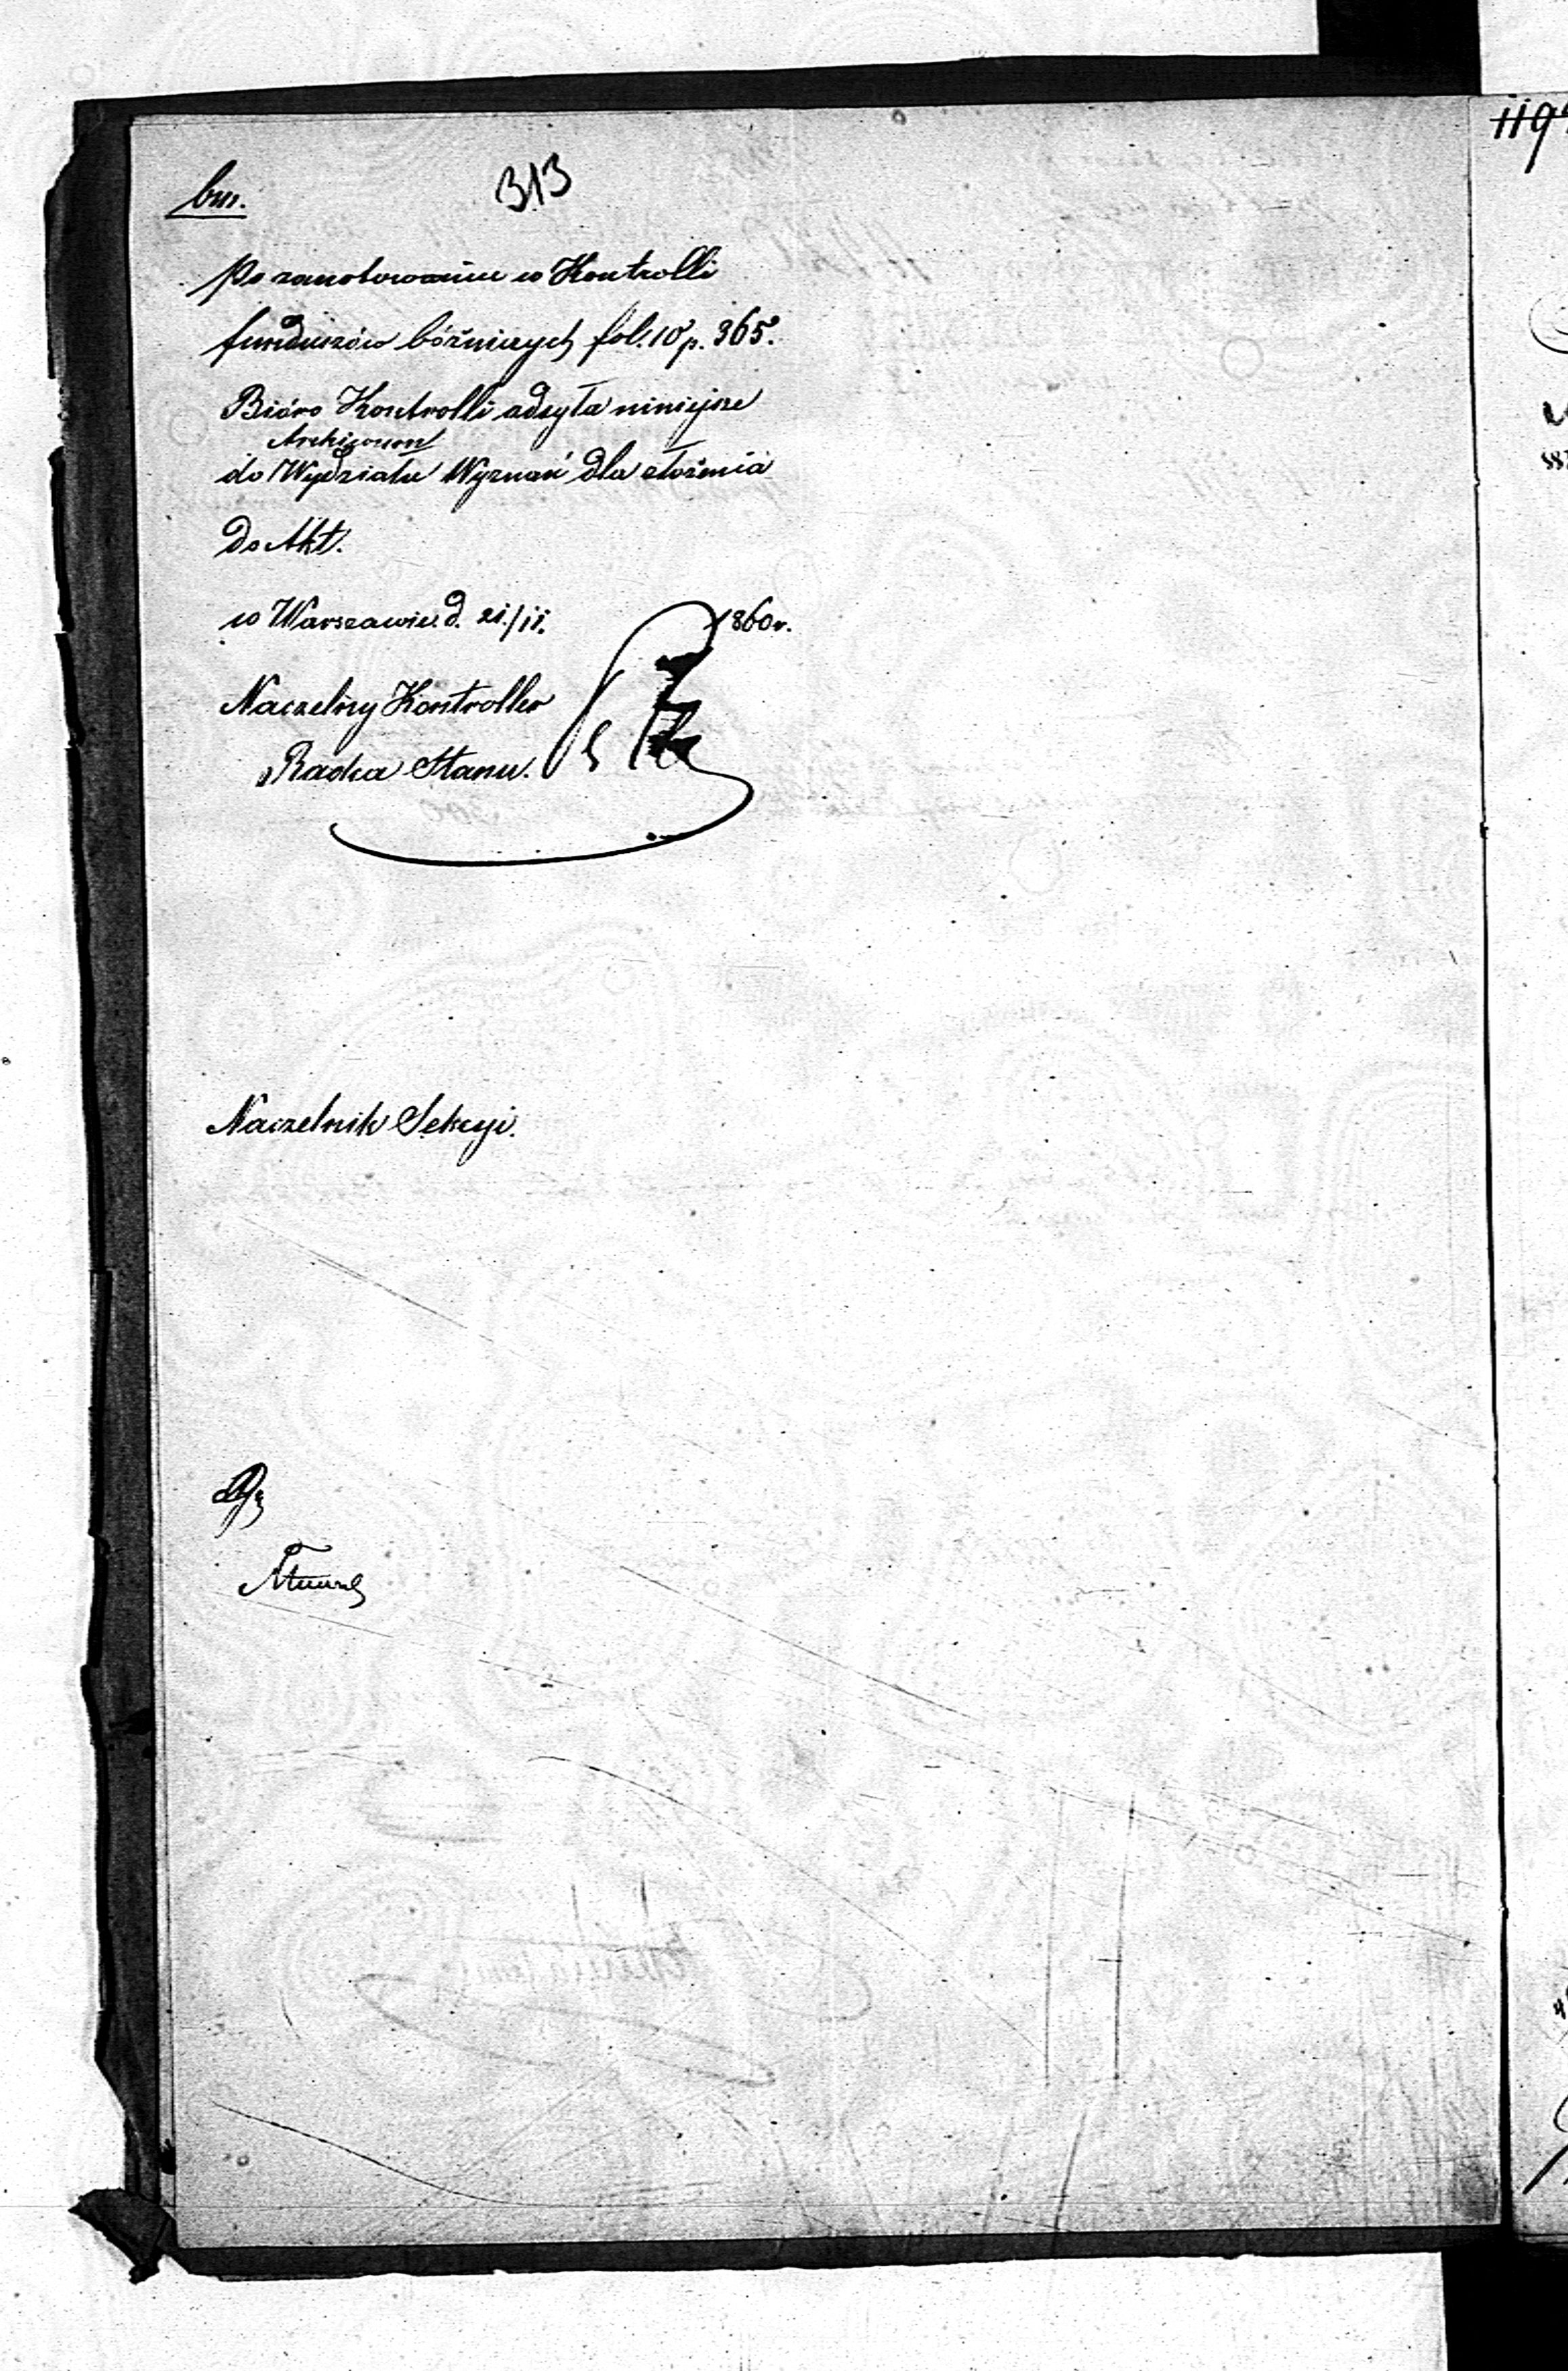 bm.
313
Po zanotowaniu w Kontrolli
funduszów bóźniczych fol. 10 p. 365.
Bióro Kontrolli odsyła niniejsze
Archiwum
do Wydziału Wyznań dla złożenia
do Akt.
w Warszawie d. 21./11. 1860 r.
Naczelny Kontroller
Radca Stanu.
Naczelnik Sekcyi.